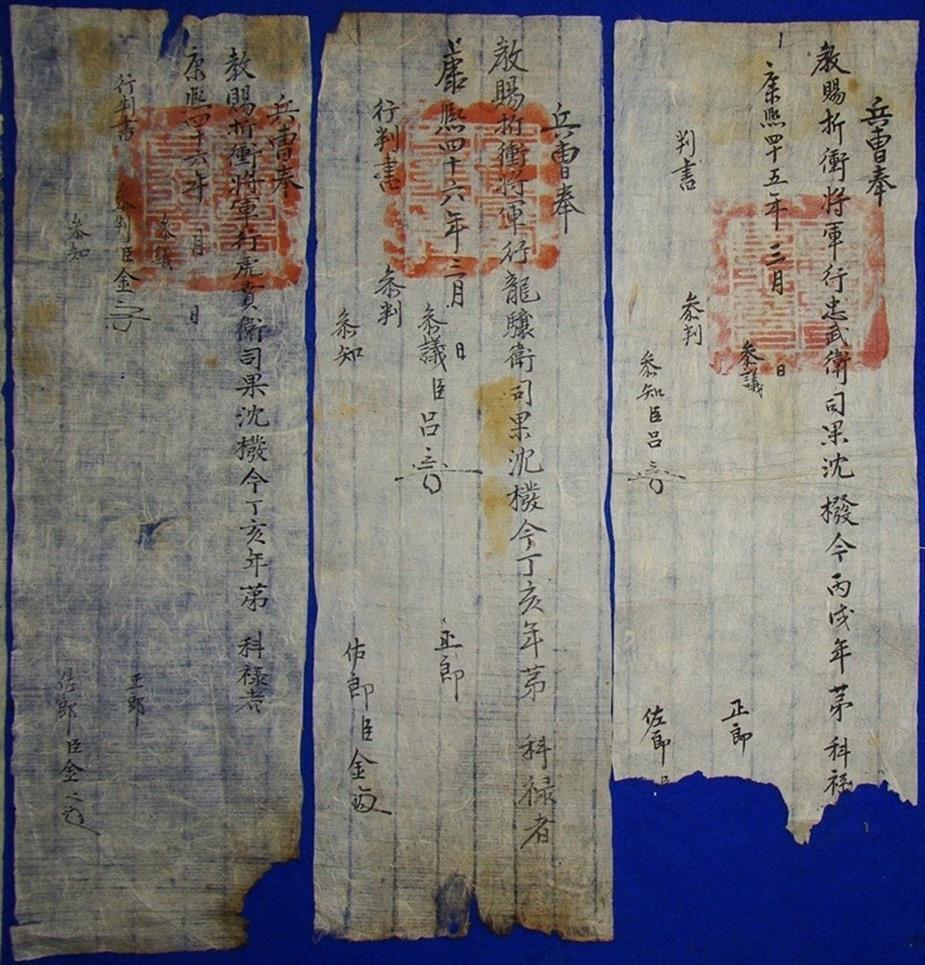 兵曺奉
教賜折衝將軍行忠武衛司果沈橃今丙戌年第 科祿
康熙四十五年三月 日
參議 正郎
判書 參判
參知臣呂 佐郎
兵曺奉
教賜折衝將軍行龍驤衛司果沈橃今丁亥年第 科祿者
康熙四十六年三月 日
參議臣呂 正郎
行判書 參判
參知 佐郎臣金
兵曺奉
教賜折衝將軍行虎賁衛司果沈橃今丁亥年第 科祿者
康熙四十六年 月 日
參議 正郎
行判書 參判臣金
參知 佐郎臣金